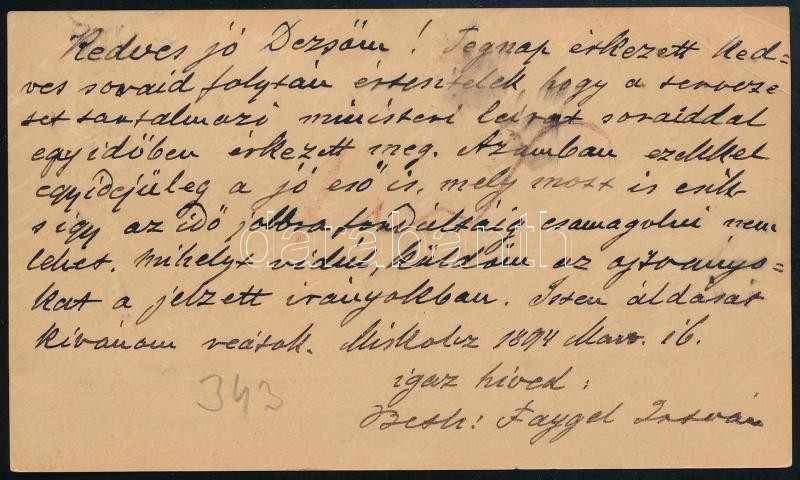 Kedves jó Dezsőm! Tegnap érkezett ked=
ves soraid folytán értesitelek, hogy a
set tartalmazó ministeri leirat soraiddal
egyidőben érkezett meg. Azomban ezekkel
egyidejüleg a jó eső is, mely most is esik
s igy az idő jobbra fordultáig csamagolni nem
lehet. Mihelyt küldöm az ojtványo=
kat a jelzett irányokban. Isten áldását
kivánom reátok. Miskolcz 1894 Mar. 16.
igaz hived:
Faygel István
343
darabanth